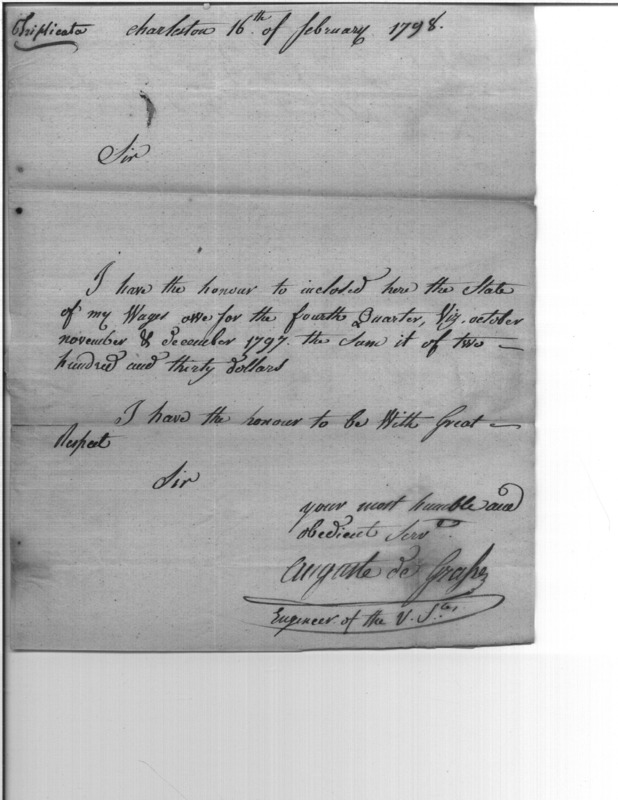 Triplicata charleston 16th of february 1798.
Sir
I have the honour to inclosed here the State
of my Wages owe for the fourth Quarter, Viz. october
november & december 1797. the Sum it of two
hundred and thirty dollars
I have the honour to be With Great
Respect
Sir
your most humble and
obedient Servt.
auguste de Grasse
Engineer of the U. Sts